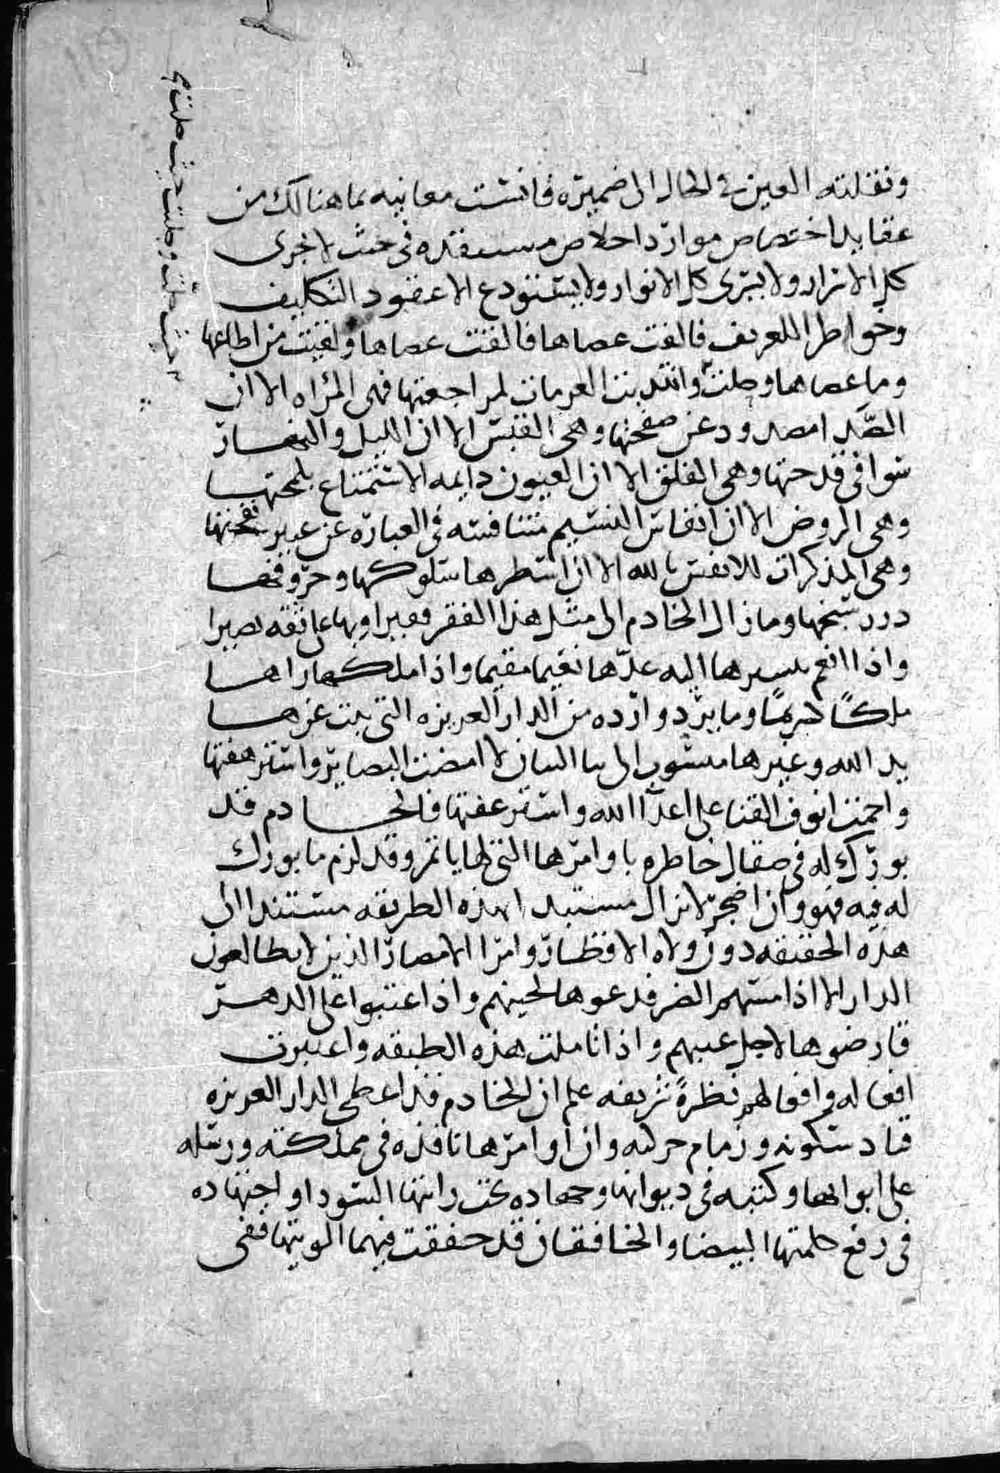 ونقلته العين في الحال الى ضميره فانثنت معانيه بما هنالك من
عقايد اختصاص موارد اخلاص مستقده في حث لا جرى
كل الاسرار ولا يسرى كل الانوار ولا يستودع الا عقود التكليف
وخواطر التعريف فالقت عصاها فالفت عصاها ولقيت من اطاعها
وما عصاها وصلت وانتدبت العرمات لمراجعتها فهي المراه الا ان
الصد امصدود عن صفحتها وهي القبس الا ان الليل والنهار
سوا في قدحتها وهي الفلق الا ان العيون دايمه الاستمتاع بلمحتها
وهي الروض الا ان انفاس النسيم متنافسه في العباره عن عبير نفحتها
وهي المذكرات للانفس بالله الا ان اسطرها سلوكها وحروفها
درر سبحها وما زال الخادم الى مثل هذا الفقر فقيرا وبها على ثقه بصيرا
واذا انعم بسيرها اليه عدها نعيما مقيما واذا ملكها راها
ملكا كريما وما يرد وارده من الدار العزيزه التي بنت عزها
يد الله وغيرها منسوب الى بنا البنان الا امضت البصاير واسترهفتها
واحمت انوف القنا على اعدا الله واسترعفتها فالخادم قد
بورك له في صقال خاطره باوامرها التي لها ياتمر وقد لزم ما بورك
له فيه فهو وان اضجر لا يزال مستبدا بهذه الطريقه مستندا الى
هذه الحقيقه دون ولاه الاقطار وامرا الامصار الذين لا يطالعون
الدار الا اذا مستهم الضر فدعوها لحينهم واذا عتبوا على الدهر
قارضوها لاجل عتبهم واذا تاملت هذه الطبقه واعتبرت
افعاله وافعالهم نظرة شريفه علم ان الخادم قد اعطى الدار العزيزه
قياد سكونه وزمام حركته وان اوامرها نافذه في مملكته ورسله
على ابوابها وكتبه في ديوانها وجهاده تحت رايتها السودا واجتهاده
في رفع كلمتها البيضا والخافقان قد خفقت فيهما الويتها ففي